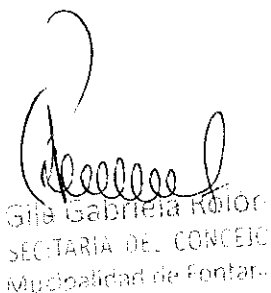 Gabriela Rolór
SECRETARIA DEL CONCEJO
Municipalidad de Fontar